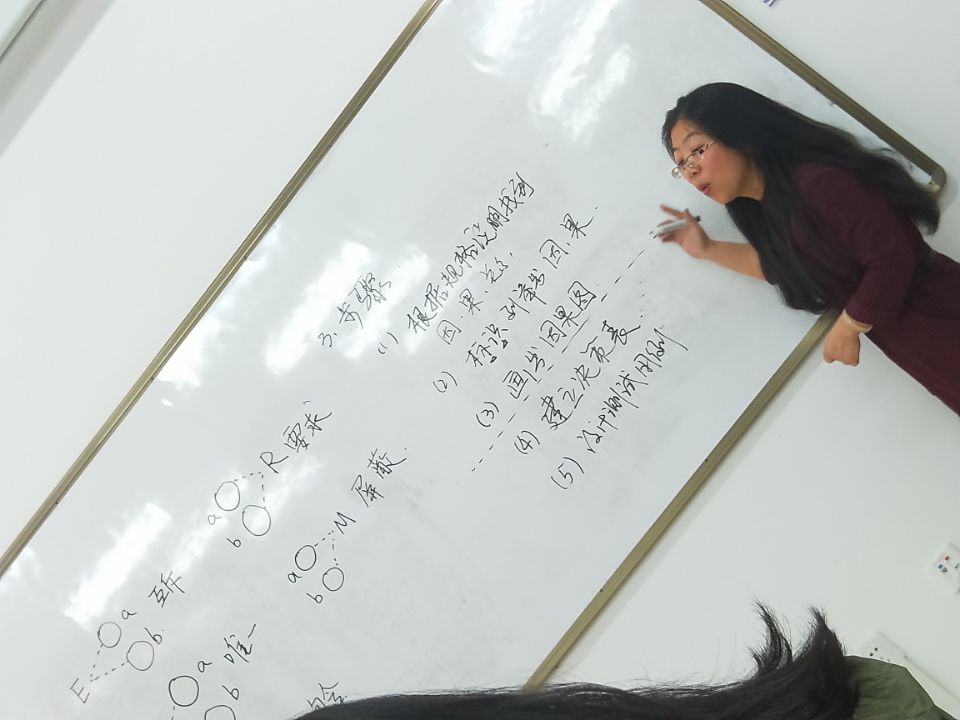 E a b 互斥
a b 唯一
a b R 要求
a b M 屏蔽.
3. 步骤
(1) 根据规格说明找到
因.果.关系,
(2) 标识 列举出 因.果.
(3) 画出因果图
(4) 建立决策表.
(5) 设计测试用例